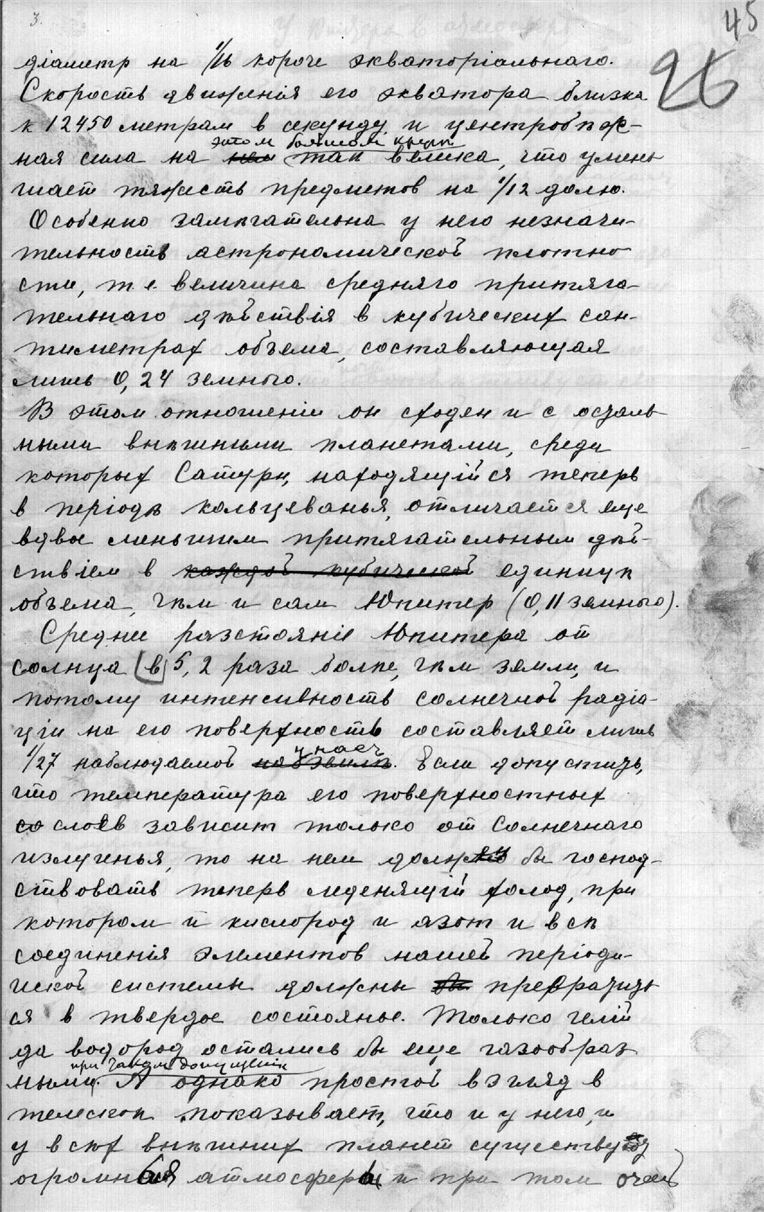 3.
45
26
діаметр на 1/16 короче экваторіальнаго.
Скорость движенія его экватора близка
к 12450 метрам в секунду и центробѣж-
этом большом кругѣ
ная сила на нем так велика, что умень
шает тяжесть предметов на 1/12 долю.
Особенно замѣчательна у него незначи-
тельность астрономической плотно
сти, т е величина средняго притяга-
тельнаго дѣйствія в кубических сан-
тиметрах объема, составляющая
лишь 0,24 земного.
В этом отношеніи он сходен и с осталь
ными внѣшними планетами, среди
которых Сатурн, находящійся теперь
в періодѣ кольцеванья, отличается еще
вдвое меньшим притягательным дѣй-
ствіем в каждой кубической единицѣ
объема, чѣм и сам Юпитер (0,11 земного).
Среднее разстояніе Юпитера от
солнца в 5,2 раза болѣе, чѣм земли, и
потому интенсивность солнечной радіа-
ціи на его поверхность составляет лишь
у насъ
1/27 наблюдаемой на Землѣ. Если допустить,
что температура его поверхностных
слоев зависит только от Солнечнаго
излученья, то на нем должен бы господ-
ствовать теперь леденящій холод, при
котором и кислород и азот и всѣ
соединенія элементов нашей періоди-
ческой системы должны бы превратить
ся в твердое состоянье. Только гелій
да водород остались бы еще газообраз
при таком допущеніи
ными. А однако простой взгляд в
телескоп показывает, что и у него, и
у всѣх внѣшних планет существует
огромная атмосфера и при том очень